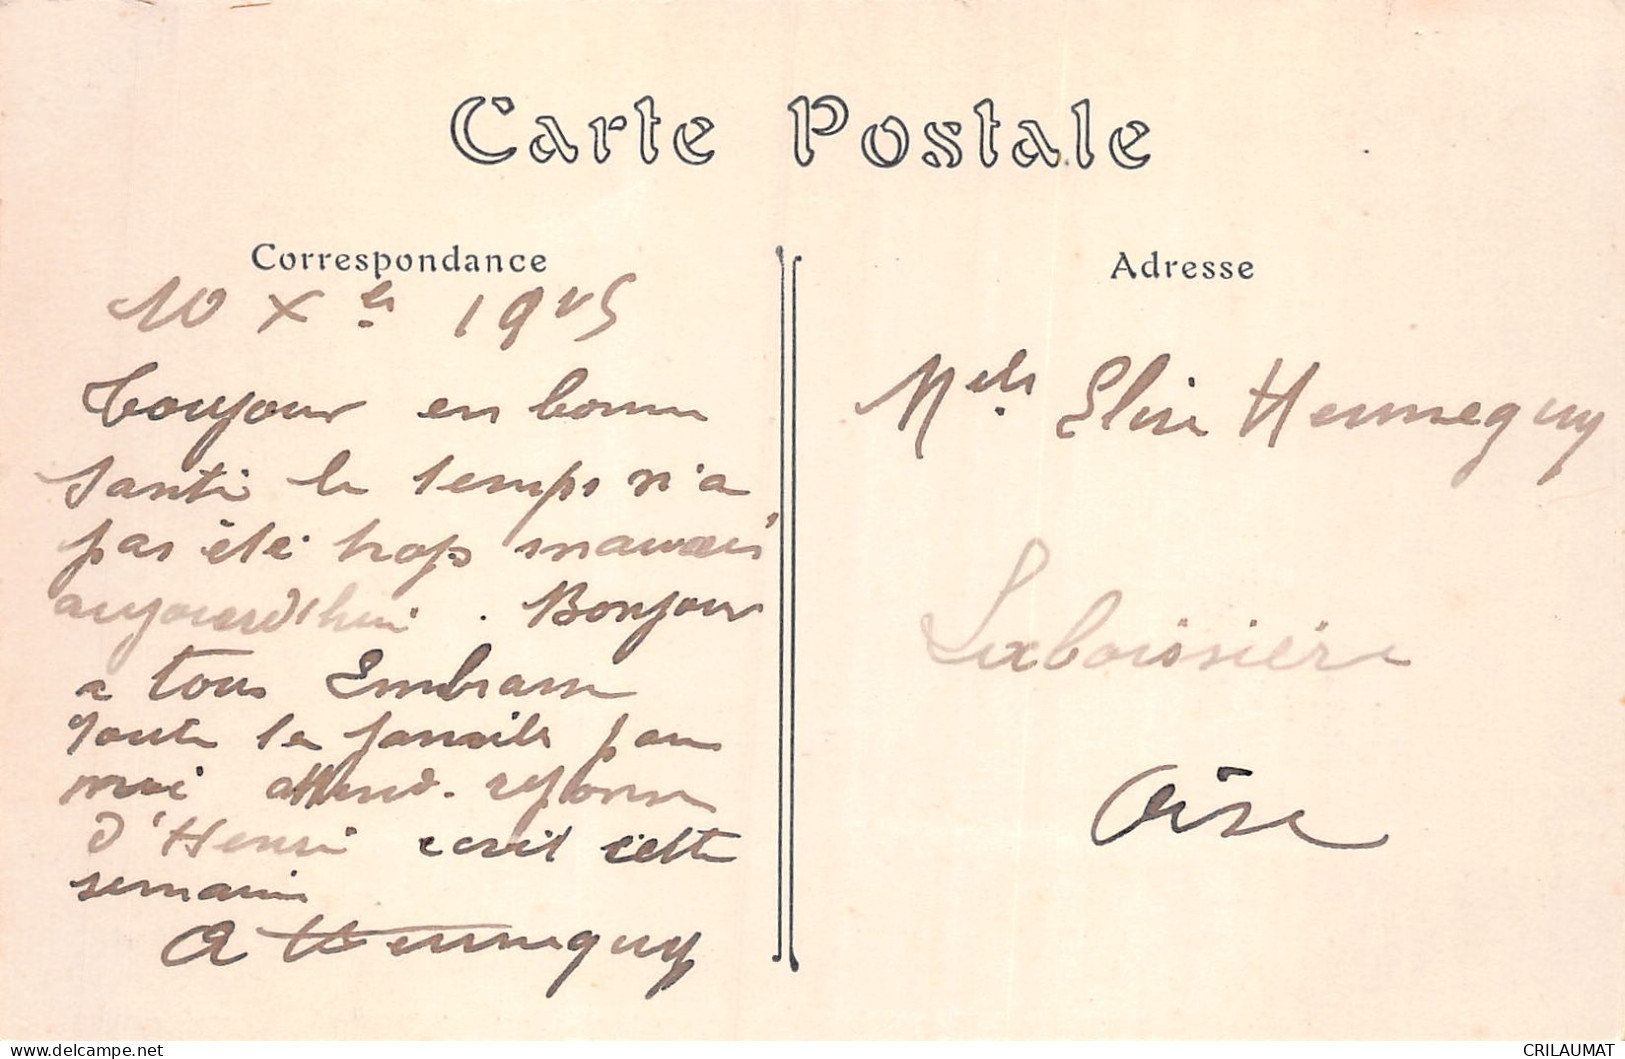 Carte Postale
Correspondance
10 Xbre 1915
Toujour en bonne
santé le temps n'a
pas été trop mauvais
aujourd'hui. Bonjour
a tous Embrasse
toute la famille pour
moi attend. reponse
d'Henri ecrit cette
semaine
A Hennequy
Adresse
Melle Elise Hennequy
Laboissière
Oise
CRILAUMAT